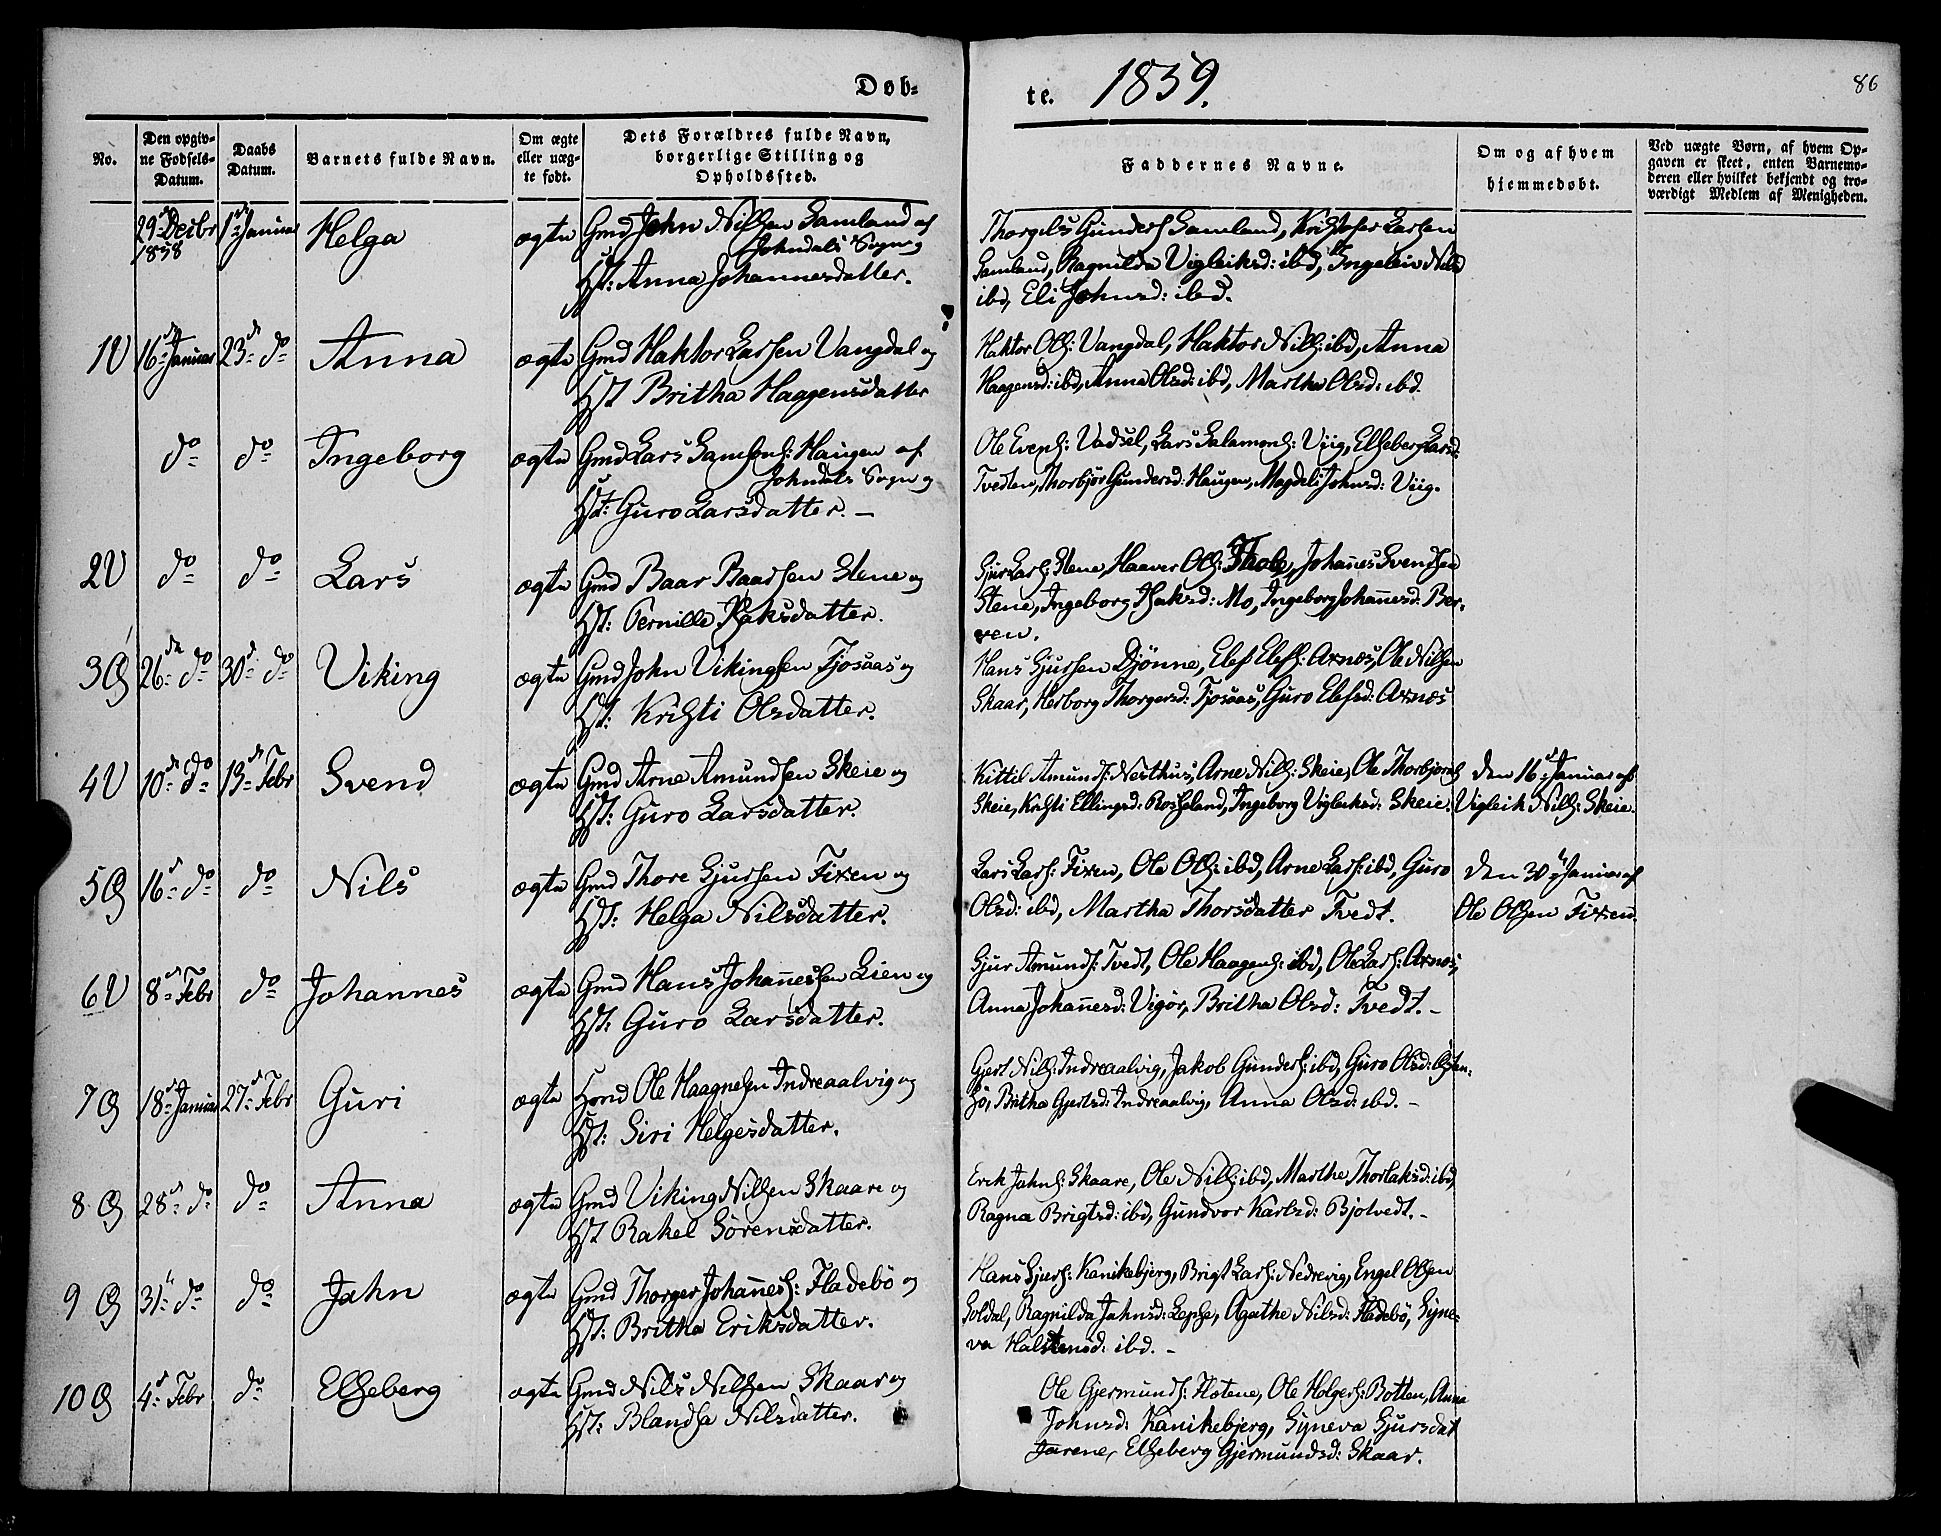 Døb=
te. 1839.
86
No.
Den opgiv=
ne Fødsels=
Datum.
Daabs
Datum.
Barnets fulde Navn.
Om ægte
eller uæg=
te født.
Dets Forældres fulde Navn,
borgerlige Stilling og
Opholdssted.
Faddernes Navne.
Om og af hvem
hjemmedøbt.
Ved uægte Børn, af hvem Op=
gaven er skeet, enten Barnemo=
deren eller hvilket bekjendt og tro=
værdigt Medlem af Menigheden.
29 Decbr 1ste Januar Helga ægte Gmd John Nilssen Samland af
1838 Johndals Sogn og
Hst: Anna Johannesdatter.
Thorgils Gunders Samland, Kristofer Larsen
Samland, Ragnilda Vigleiksd: ibd, Ingeleiv Nilsd
ibd, Eli Johnsd: ibd.
1 V 16de Januar 23de do Anna ægte Gmd Haktor Larssen Vangdal og
Hst Britha Haagensdatter
Haktor Ols: Vangdal, Haktor Nils: ibd, Anna
Haagensd: ibd, Anna Olsd: ibd, Martha Olsd: ibd.
do do Ingeborg ægte Gmd Lars Samsons: Haugen af
Johndals Sogn og
Hst: Guro Larsdatter. —
Ole Evens: Vadsel, Lars Salamons: Viig, Elseberg Larsd:
Tvedten, Thorbjør Gundersd: Haugen, Magdeli Johnsd: Viig.
2 V do do Lars ægte Gmd Baar Baarssen Stene og
Hst: Pernille Isaksdatter.
Sjur Lars: Stene, Haaver Ols: Thole, Johañes Svendsen
Stene, Ingeborg Isaksd: Mo, Ingeborg Johañesd: Ber=
ven.
3 G 26de do 30de do Viking ægte Gmd John Vikingsen Fjosaas og
Hst: Kristi Olsdatter.
Hans Sjurssen Djönne, Elef Elefs: Arnæs, Ole Nilsen
Skaar, Herborg Thorgersd: Fjosaas, Guro Elefsd: Arnæs
4 V 10de do 13de Febr Svend ægte Gmd Arne Amundsen Skeie og
Hst: Guro Larsdatter.
Kittil Amunds: Nesthus, Arne Nils: Skeie, Ole Thorbjorns
Skeie, Kristi Ellingsd: Rosseland, Ingeborg Vigleiksd: Skeie.
Den 16de Januar af
Vigleik Nils: Skeie.
5 G 16de do do Nils ægte Gmd Thore Sjurssen Fixen og
Hst: Helga Nilsdatter.
Lars Lars: Fixen, Ole Ols: ibd, Arne Lars: ibd, Guro
Olsd: ibd, Martha Thorsdatter Tvedt.
Den 30te Januar af
Ole Olsen Fixen.
6 V 8de Febr do Johannes ægte Gmd Hans Johañessen Lien og
Hst: Guro Larsdatter.
Sjur Amunds: Tvedt, Ole Haagens: ibd, Ole Lars: Arnæs,
Anna Johañesd: Vigør, Britha Olsd: Tvedt. —
7 G 18de Januar 27de Febr Guri ægte Hmd Ole Haagnesen Indreaalvig og
Hst: Siri Helgesdatter.
Gjert Nils: Indreaalvig, Jakob Gunders: ibd, Guro Olsd:
Britha Gjertsd: Indreaalvig, Anna Olsd: ibd. —
8 G 28de do do Anna ægte Gmd Viking Nilsen Skaare og
Hst Rakel Sørensdatter.
Erik Jahns: Skaare, Ole Nils: ibd, Marthe Thorlaksd: ibd,
Ragna Brigtsd: ibd, Gundvor Karlsd: Bjotvedt. —
9 G 31te do do Jahn ægte Gmd Thorger Johañes: Fladebö og
Hst: Britha Eriksdatter.
Hans Sjurs: Kanikebjerg, Brigt Lars: Nedrevig, Engel Olsen
Soldal, Ragnilda Jahnsd: Lepse, Agathe Nilsd: Fladebö, Syne=
va Halstensd: ibd. —
10 G 4de Febr do Elseberg ægte Gmd Nils Nilsen Skaar og
Hst: Blandsa Nilsdatter.
Ole Gjermunds: Flotene, Ole Holgers: Botten, Anna
Johnsd: Kanikebjerg, Syneva Sjursdat
Jarene, Elseberg Gjermundsd: Skaar.